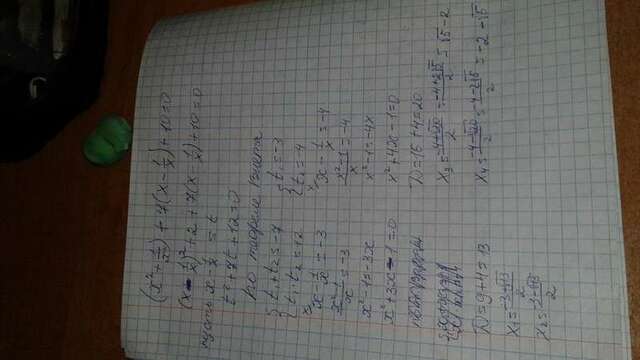 (x² + 1/x²) + 7(x - 1/x) + 10 = 0
(x - 1/x)² + 2 + 7(x - 1/x) + 10 = 0
пусть x - 1/x = t
t² + 7t + 12 = 0
по теореме Виета
{ t₁ + t₂ = -7 { t₁ = -3
{ t₁ · t₂ = 12 { t₂ = -4
x - 1/x = -3
(x² - 1)/x = -3
x² - 1 = -3x
x² + 3x - 1 = 0
D = 9 + 4 = 13
x₁ = (-3 + √13)/2
x₂ = (-3 - √13)/2
x - 1/x = -4
(x² - 1)/x = -4
x² - 1 = -4x
x² + 4x - 1 = 0
D = 16 + 4 = 20
x₃ = (-4 + √20)/2 = (-4 + 2√5)/2 = √5 - 2
x₄ = (-4 - √20)/2 = (-4 - 2√5)/2 = -2 - √5